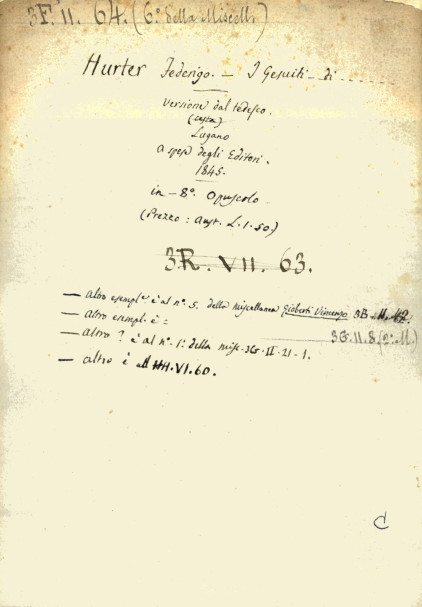 3F. II. 64. (6º della Miscell.)
Hurter Federigo. — I Gesuiti — di
versione dal tedesco.
Lugano
a spese degli Editori.
1845.
in - 8º. Opuscolo
(Prezzo: Aust. L. 1.50)
3R. VII. 63.
— altro esempl.e è al nº. 5. della miscellanea Gioberti Vincenzo 3B. II. 42
— altro esempl. è = 3G. II. 8. (2º. II.)
— altro ? è al nº. 1º. della misc. 3G. II. 21 - 1.
— altro è VI. 60.
C